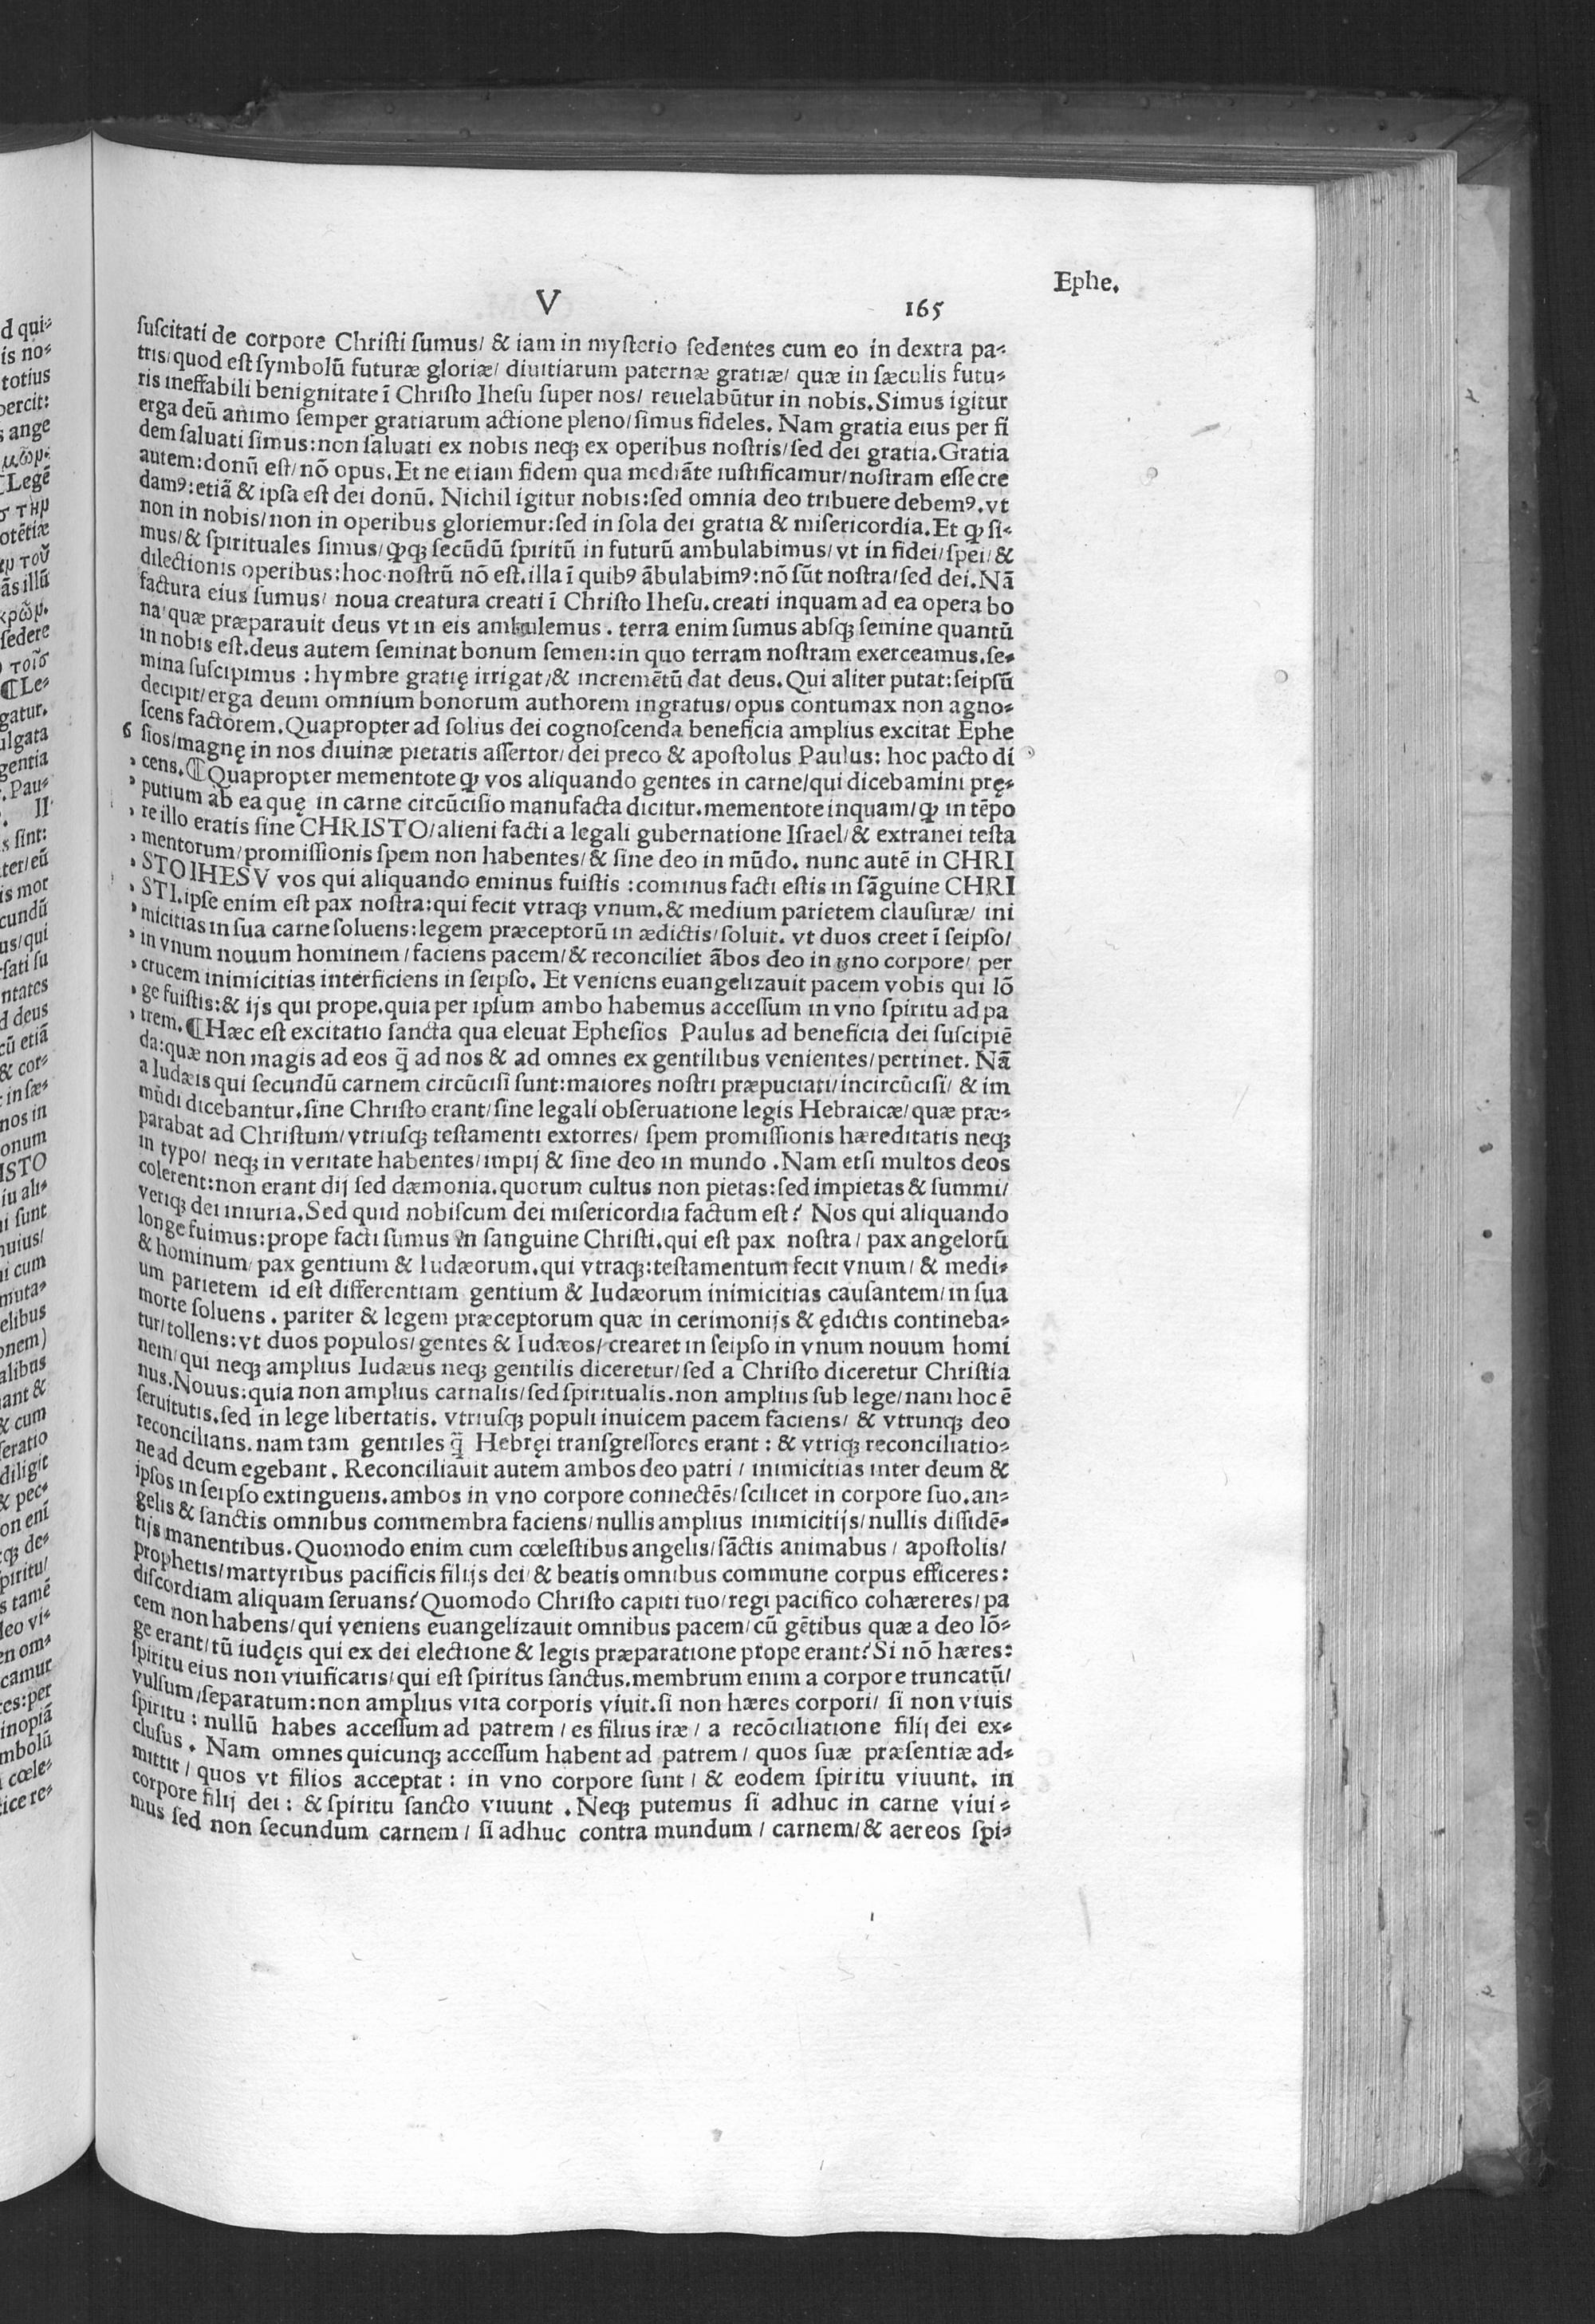 Ephe.
V 165
suscitati de corpore Christi sumus/ & iam in mysterio sedentes cum eo in dextra pa⸗
tris/ quod est symbolū futuræ gloriæ/ diuitiarum paternæ gratiæ/ quæ in sæculis futu⸗
ris ineffabili benignitate ī Christo Ihesu super nos/ reuelabūtur in nobis. Simus igitur
erga deū animo semper gratiarum actione pleno/ simus fideles. Nam gratia eius per fi
dem saluati simus: non saluati ex nobis neqꝫ ex operibus nostris/ sed dei gratia. Gratia
autem: donū est/ nō opus. Et ne etiam fidem qua mediāte iustificamur/ nostram esse cre
damꝰ: etiā & ipsa est dei donū. Nichil igitur nobis: sed omnia deo tribuere debemꝰ. vt
non in nobis/ non in operibus gloriemur: sed in sola dei gratia & misericordia. Et ꝙ si⸗
mus/ & spirituales simus/ ꝙqꝫ secūdū spiritū in futurū ambulabimus/ vt in fidei/ spei/ &
dilectionis operibus: hoc nostrū nō est. illa ī quibꝰ ābulabimꝰ: nō sūt nostra/ sed dei. Nā
factura eius sumus/ noua creatura creati ī Christo Ihesu. creati inquam ad ea opera bo
na/ quæ præparauit deus vt in eis ambulemus. terra enim sumus absqꝫ semine quantū
in nobis est. deus autem seminat bonum semen: in quo terram nostram exerceamus. se⸗
mina suscipimus: hymbre gratię irrigat/ & incremētū dat deus. Qui aliter putat: seipsū
decipit/ erga deum omnium bonorum authorem ingratus/ opus contumax non agno⸗
scens factorem. Quapropter ad solius dei cognoscenda beneficia amplius excitat Ephe
6 sios/ magnę in nos diuinæ pietatis assertor/ dei preco & apostolus Paulus: hoc pacto di
, cens. ¶ Quapropter mementote ꝙ vos aliquando gentes in carne/ qui dicebamini prę⸗
, putium ab ea quę in carne circūcisio manufacta dicitur. mementote inquam/ ꝙ in tēpo
, re illo eratis sine CHRISTO/ alieni facti a legali gubernatione Israel/ & extranei testa
, mentorum/ promissionis spem non habentes/ & sine deo in mūdo. nunc autē in CHRI
, STO IHESV vos qui aliquando eminus fuistis: cominus facti estis in sāguine CHRI
, STI. ipse enim est pax nostra: qui fecit vtraqꝫ vnum. & medium parietem clausuræ/ ini
, micitias in sua carne soluens: legem præceptorū in ædictis/ soluit. vt duos creet ī seipso/
, in vnum nouum hominem/ faciens pacem/ & reconciliet ābos deo in vno corpore/ per
, crucem inimicitias interficiens in seipso. Et veniens euangelizauit pacem vobis qui lō
, ge fuistis: & ijs qui prope. quia per ipsum ambo habemus accessum in vno spiritu ad pa
, trem. ¶ Hæc est excitatio sancta qua eleuat Ephesios Paulus ad beneficia dei suscipiē
da: quæ non magis ad eos q̄ ad nos & ad omnes ex gentilibus venientes/ pertinet. Nā
a Iudæis qui secundū carnem circūcisi sunt: maiores nostri præpuciati/ incircūcisi/ & im
mūdi dicebantur. sine Christo erant/ sine legali obseruatione legis Hebraicæ/ quæ præ⸗
parabat ad Christum/ vtriusqꝫ testamenti extorres/ spem promissionis hæreditatis neqꝫ
in typo/ neqꝫ in veritate habentes/ impij & sine deo in mundo. Nam etsi multos deos
colerent: non erant dij sed dæmonia. quorum cultus non pietas: sed impietas & summi/
veriqꝫ dei iniuria. Sed quid nobiscum dei misericordia factum est? Nos qui aliquando
longe fuimus: prope facti sumus in sanguine Christi. qui est pax nostra/ pax angelorū
& hominum/ pax gentium & Iudæorum. qui vtraqꝫ: testamentum fecit vnum/ & medi⸗
um parietem id est differentiam gentium & Iudæorum inimicitias causantem/ in sua
morte soluens. pariter & legem præceptorum quæ in cerimonijs & ędictis contineba⸗
tur/ tollens: vt duos populos/ gentes & Iudæos/ crearet in seipso in vnum nouum homi
nem/ qui neqꝫ amplius Iudæus neqꝫ gentilis diceretur/ sed a Christo diceretur Christia
nus. Nouus: quia non amplius carnalis/ sed spiritualis. non amplius sub lege/ nam hoc ē
seruitutis. sed in lege libertatis. vtriusqꝫ populi inuicem pacem faciens/ & vtrunqꝫ deo
reconcilians. nam tam gentiles q̄ Hebręi transgressores erant: & vtriqꝫ reconciliatio⸗
ne ad deum egebant. Reconciliauit autem ambos deo patri/ inimicitias inter deum &
ipsos in seipso extinguens. ambos in vno corpore connectēs/ scilicet in corpore suo. an⸗
gelis & sanctis omnibus commembra faciens/ nullis amplius inimicitijs/ nullis dissidē⸗
tijs manentibus. Quomodo enim cum cœlestibus angelis/ sāctis animabus/ apostolis/
prophetis/ martyribus pacificis filijs dei/ & beatis omnibus commune corpus efficeres:
discordiam aliquam seruans? Quomodo Christo capiti tuo/ regi pacifico cohæreres/ pa
cem non habens/ qui veniens euangelizauit omnibus pacem/ cū gētibus quæ a deo lō⸗
ge erant/ tū iudęis qui ex dei electione & legis præparatione prope erant? Si nō hæres:
spiritu eius non viuificaris/ qui est spiritus sanctus. membrum enim a corpore truncatū/
vulsum/ separatum: non amplius vita corporis viuit. si non hæres corpori/ si non viuis
spiritu: nullū habes accessum ad patrem/ es filius iræ/ a recōciliatione filij dei ex⸗
clusus. Nam omnes quicunqꝫ accessum habent ad patrem/ quos suæ præsentiæ ad⸗
mittit/ quos vt filios acceptat: in vno corpore sunt/ & eodem spiritu viuunt. in
corpore filij dei: & spiritu sancto viuunt. Neqꝫ putemus si adhuc in carne viui⸗
mus sed non secundum carnem/ si adhuc contra mundum/ carnem/ & aereos spi⸗